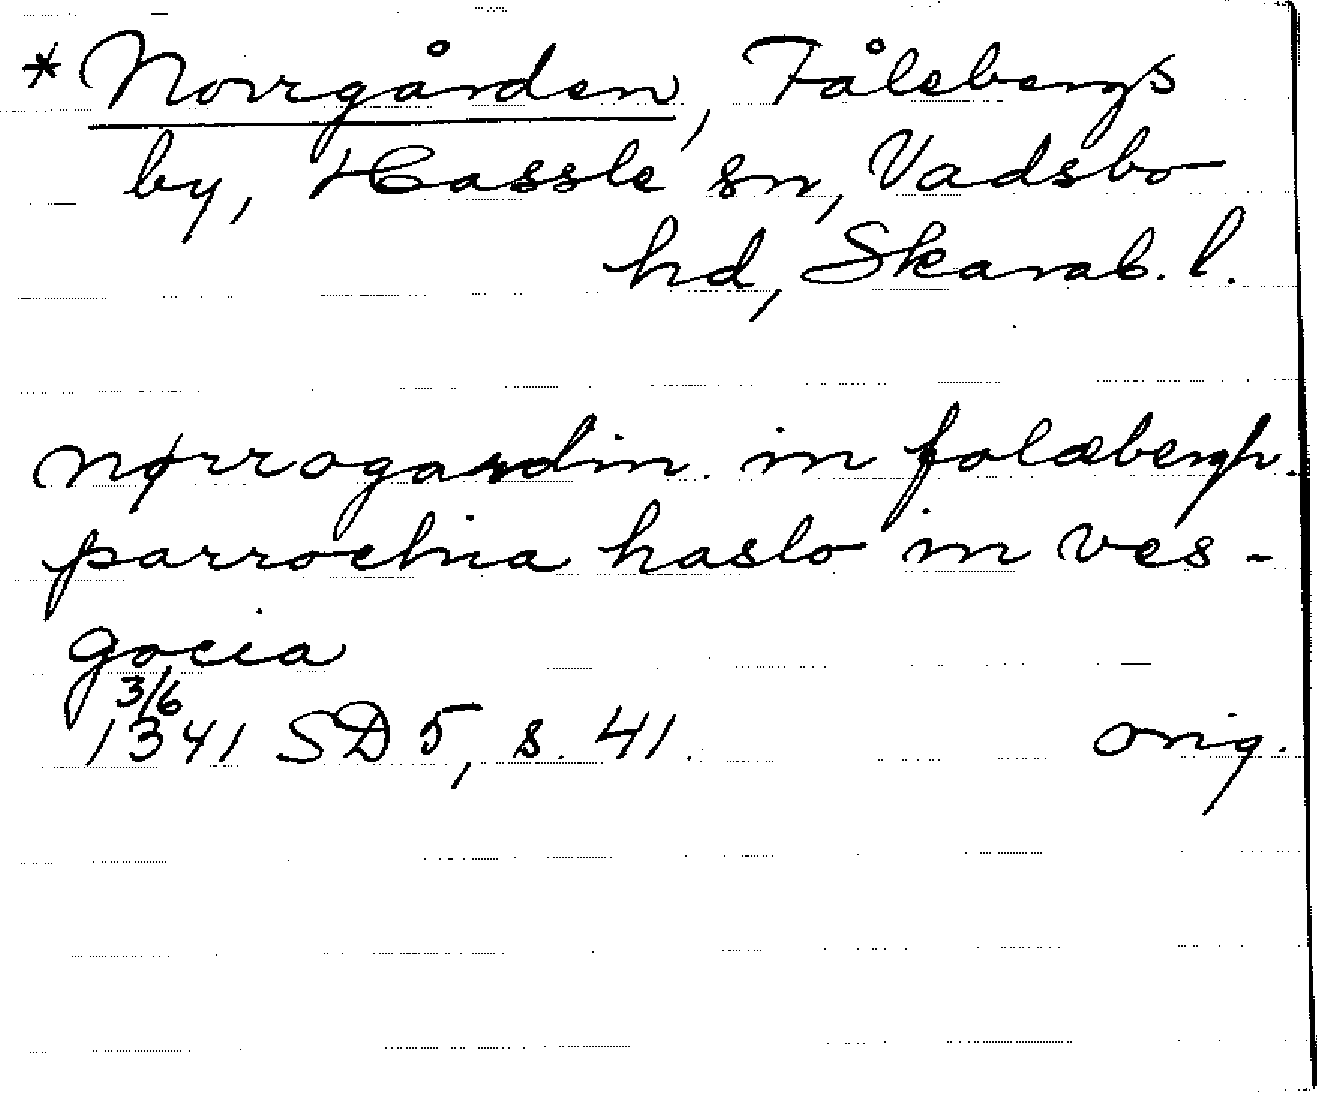 *Norrgården, Fålebergs
by, Hassle sn, Vadsbo
hd, Skarab. l.
nørrogardin. in folæbergh.
parrochia haslo in ves-
gocia
3/6
1341 SD 5, s. 41. orig.